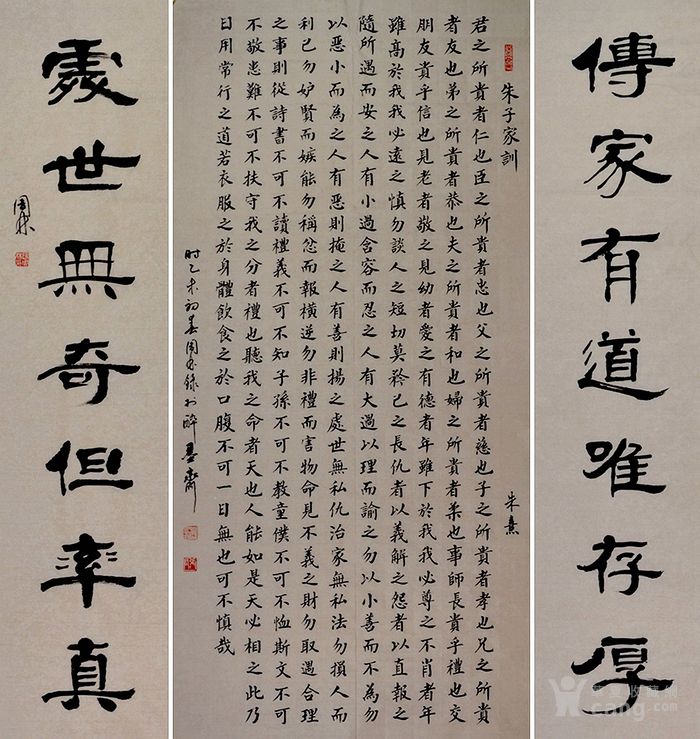 傳家有道唯存厚
朱子家訓 朱熹
君之所貴者仁也臣之所貴者忠也父之所貴者慈也子之所貴者孝也兄之所貴
者友也弟之所貴者恭也夫之所貴者和也婦之所貴者柔也事師長貴乎禮也交
朋友貴乎信也見老者敬之見幼者愛之有德者年雖下於我我必尊之不肖者年
雖高於我我必遠之慎勿談人之短切莫矜己之長仇者以義解之怨者以直報之
隨所遇而安之人有小過含容而忍之人有大過以理而諭之勿以小善而不為勿
以惡小而為之人有惡則掩之人有善則揚之處世無私仇治家無私法勿損人而
利己勿妒賢而嫉能勿稱忿而報橫逆勿非禮而害物命見不義之財勿取遇合理
之事則從詩書不可不讀禮義不可不知子孫不可不教童僕不可不恤斯文不可
不敬患難不可不扶守我之分者禮也聽我之命者天也人能如是天必相之此乃
日用常行之道若衣服之於身體飲食之於口腹不可一日無也可不慎哉
时乙未初春周林錄於醉墨齋
處世無奇但率真
周林
cang.com